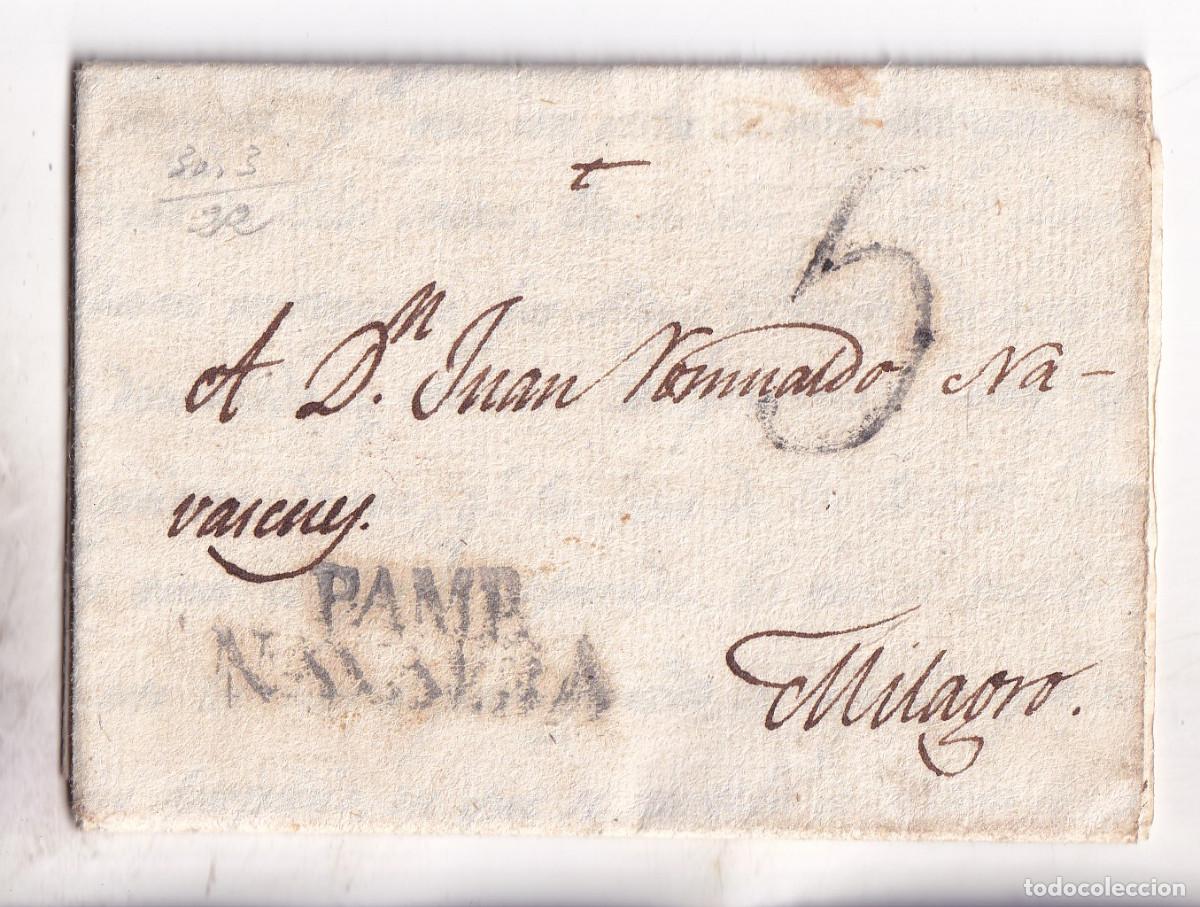 30,3
t
5
A D.n Juan Romualdo Na-
vascues.
PAMP.
NAVARRA
Milagro.
todocoleccion